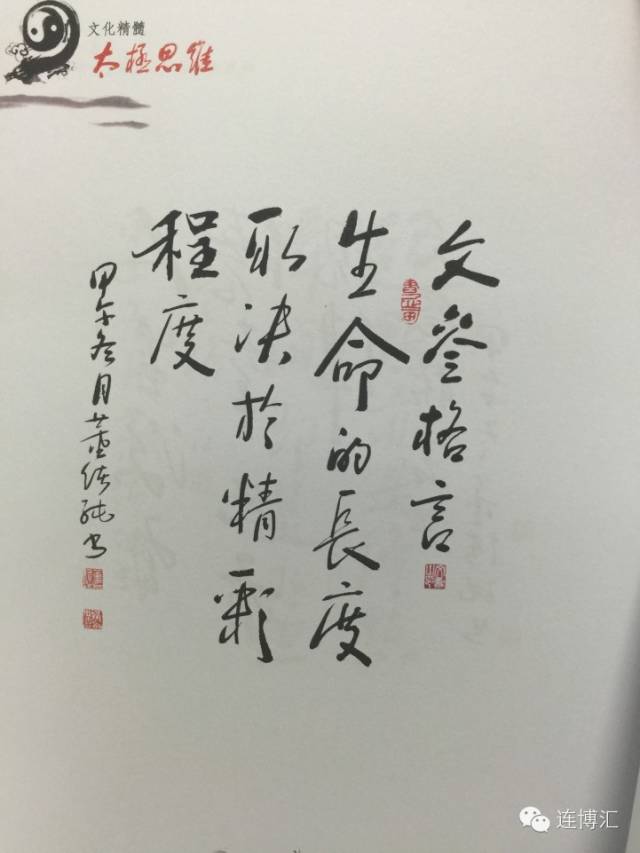 文化精髓
太極思維
文叄格言
生命的長度
取決於精彩
程度
甲午冬月董經純书
连博汇